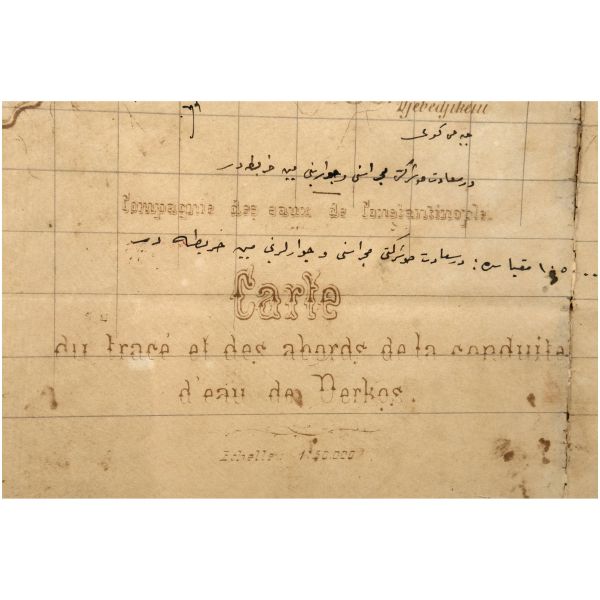 Djebedjikeui
جبه جی کوی
در سعادت صو شرکتی مجراسنی و جوارینی مبین خریطه در
Compagnie des eaux de Constantinople.
مقیاسی: در سعادت صو شرکتی مجراسنی و جوارلرینی مبین خریطه در
Carte
du tracé et des abords de la conduite
d'eau de Derkos.
Echelle: 1:50.000